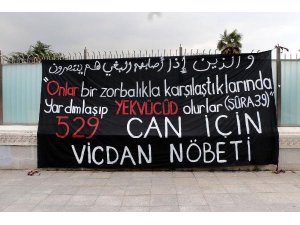 والذين إذا أصابهم البغي هم ينتصرون
"Onlar bir zorbalıkla karşılaştıklarında,
Yardımlaşıp YEKVÜCÜD olurlar (ŞÛRA,39)"
529 CAN İÇİN
VİCDAN NÖBETİ